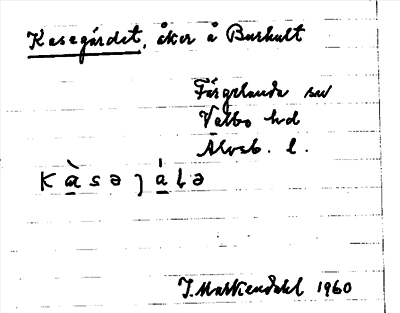 Kasegärdet, åker å Burhult
Färgelanda sn
Valbo hd
Älvsb. l.
J. Markendahl 1960